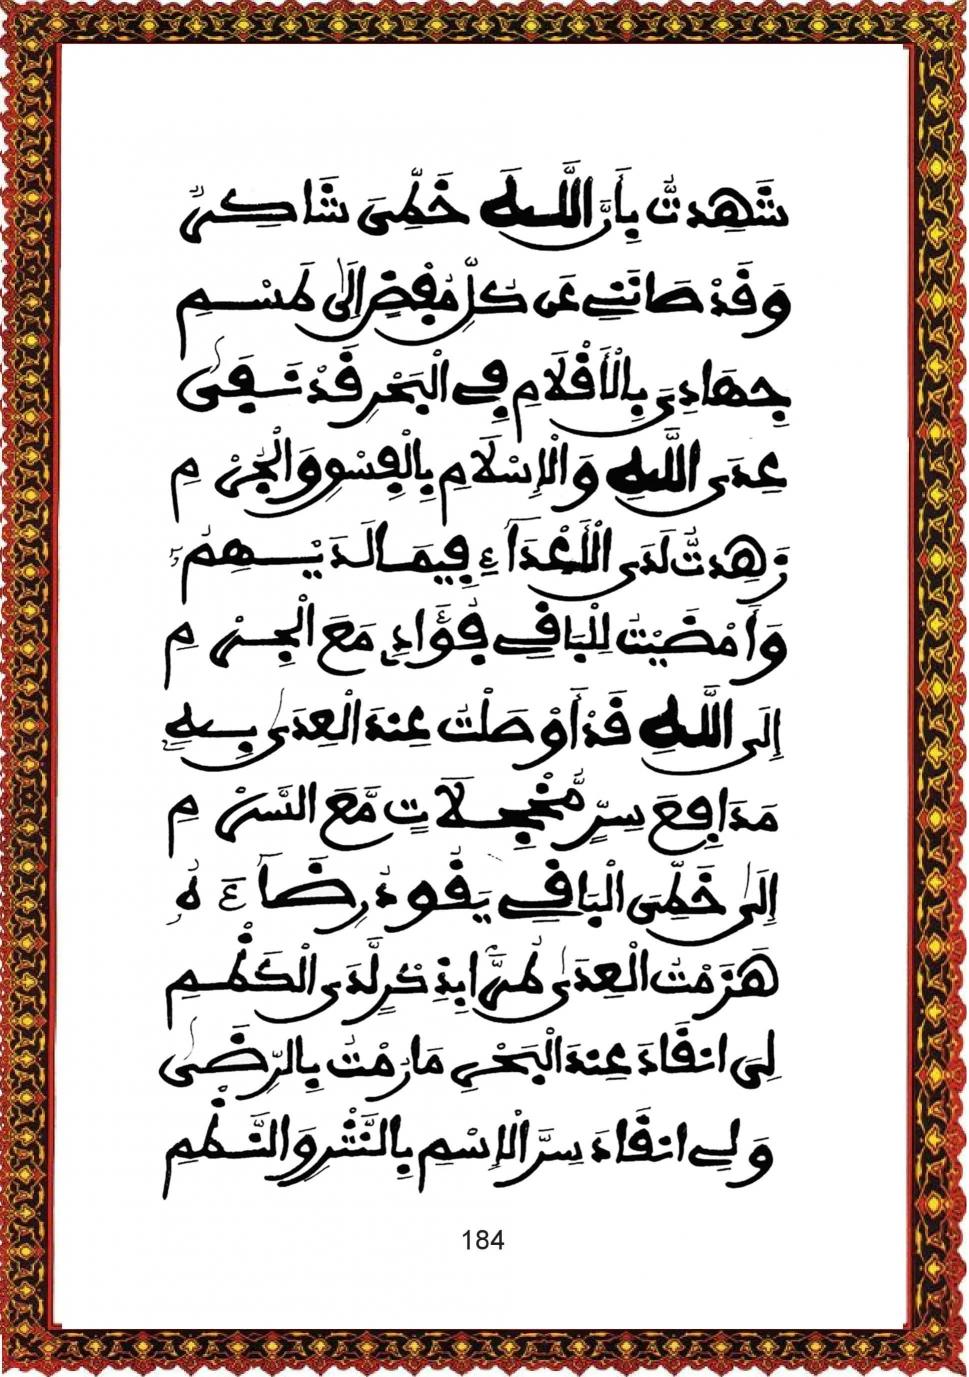 شَهِدتُّ بِأَنَّ اللَّهَ خَطِّىَ شَاكِرٌ
وَقَدْ صَانَنِي عَن كُلِّ مُفْضٍ إِلَى طَسْمِ
جِهَادِىَ بِالْأَقْلَامِ فِي الْبَحْرِ قَدْ نَفَى
عِدَى اللَّهِ وَالْإِسْلَامِ بِالْفِسْقِ وَالْجُرْمِ
زَهِدتُّ لَدَى الْأَعْدَاءِ فِيمَا لَدَيْهِمُ
وَأَمْضَيْتُ لِلْبَاقِي فُؤَادِي مَعَ الْجِسْمِ
إِلَى اللَّهِ قَدْ أَوْصَلْتُ عِندَ الْعِدَى بِهِ
مَدَافِعَ سِرٍّ مُّخْجِلَاتٍ مَّعَ
إِلَى خَطِّىَ الْبَاقِي يَقُودُ رِضَاءَهُ
هَزَمْتُ الْعِدَى طُرًّا بِذِكْرٍ لَّدَى الْكَظْمِ
لِىَ انقَادَ عِندَ الْبَحْرِ مَا رُمْتُ بِالرِّضَى
وَلِي انقَادَ سِرُّ الْإِسْمِ بِالنَّثْرِ وَالنَّظْمِ
184